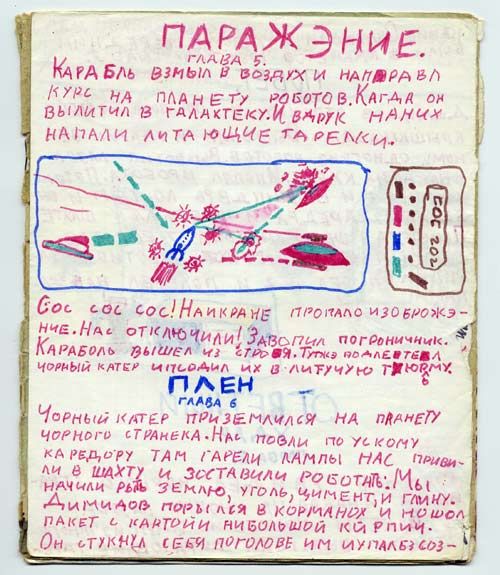 ПАРАЖЭНИЕ.
ГЛАВА 5.
КАРАБЛЬ ВЗМЫЛ В ВОЗДУХ И НАПОРАВЛ
КУРС НА ПЛАНЕТУ РОБОТОВ. КАГДА ОН
ВЫЛИТИЛ В ГАЛАХТЕКУ. И ВДРУК НАНИХ
НАПАЛИ ЛИТАЮЩИЕ ТАРЕЛКИ.
СОС СОС
СОС СОС СОС! НАИКРАНЕ ПРОПАЛО ИЗОБРОЖЭ-
НИЕ. НАС ОТКЛЮЧИЛИ! ЗАВОПИЛ ПОГРОНИЧНИК.
КАРАБОЛЬ ВЫШЕЛ ИЗ СТРОЯ. ТУТЖЭ ПОДЛЕТЕЛ
ЧОРНЫЙ КАТЕР ИПСОДИЛ ИХ В ЛИТУЧУЮ ТЮРМУ.
6
ПЛЕН
ГЛАВА 6
ЧОРНЫЙ КАТЕР ПРИЗЕМЛИЛСЯ НА ПЛАНЕТУ
ЧОРНОГО СТРАНЕКА. НАС ПОВЛИ ПО УСКОМУ
КАРЕДОРУ ТАМ ГАРЕЛИ ЛАМПЫ НАС ПРИВИ-
ЛИ В ШАХТУ И ЗОСТАВИЛИ РОБОТАТЬ. МЫ
НАЧИЛИ РЫТЬ ЗЕМЛЮ, УГОЛЬ, ЦИМЕНТ, И ГЛИНУ.
ДИМИДОВ ПОРЫЛСЯ В КОРМАНОХ И НОШОЛ
ПАКЕТ С КАРТОЙ И НИБОЛЬШОЙ КИРПИЧ.
ОН СТУКНУЛ СЕБЯ ПОГОЛОВЕ ИМ ИУПАЛБЗ СОЗ-